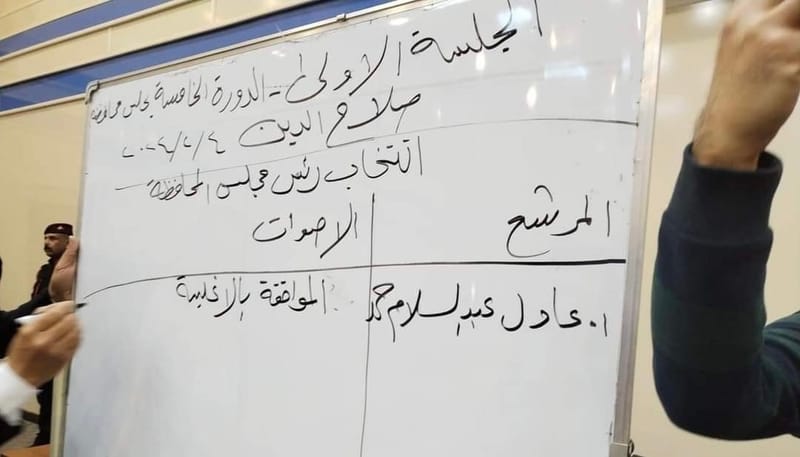 الجلسة الاولى - الدورة الخامسة مجلس محافظة
صلاح الدين ٢٠٢٤/٢/٤
انتخاب رئيس مجلس المحافظة
المرشح الاصوات
١. عادل عبدالسلام حمد الموافقة بالاغلبية